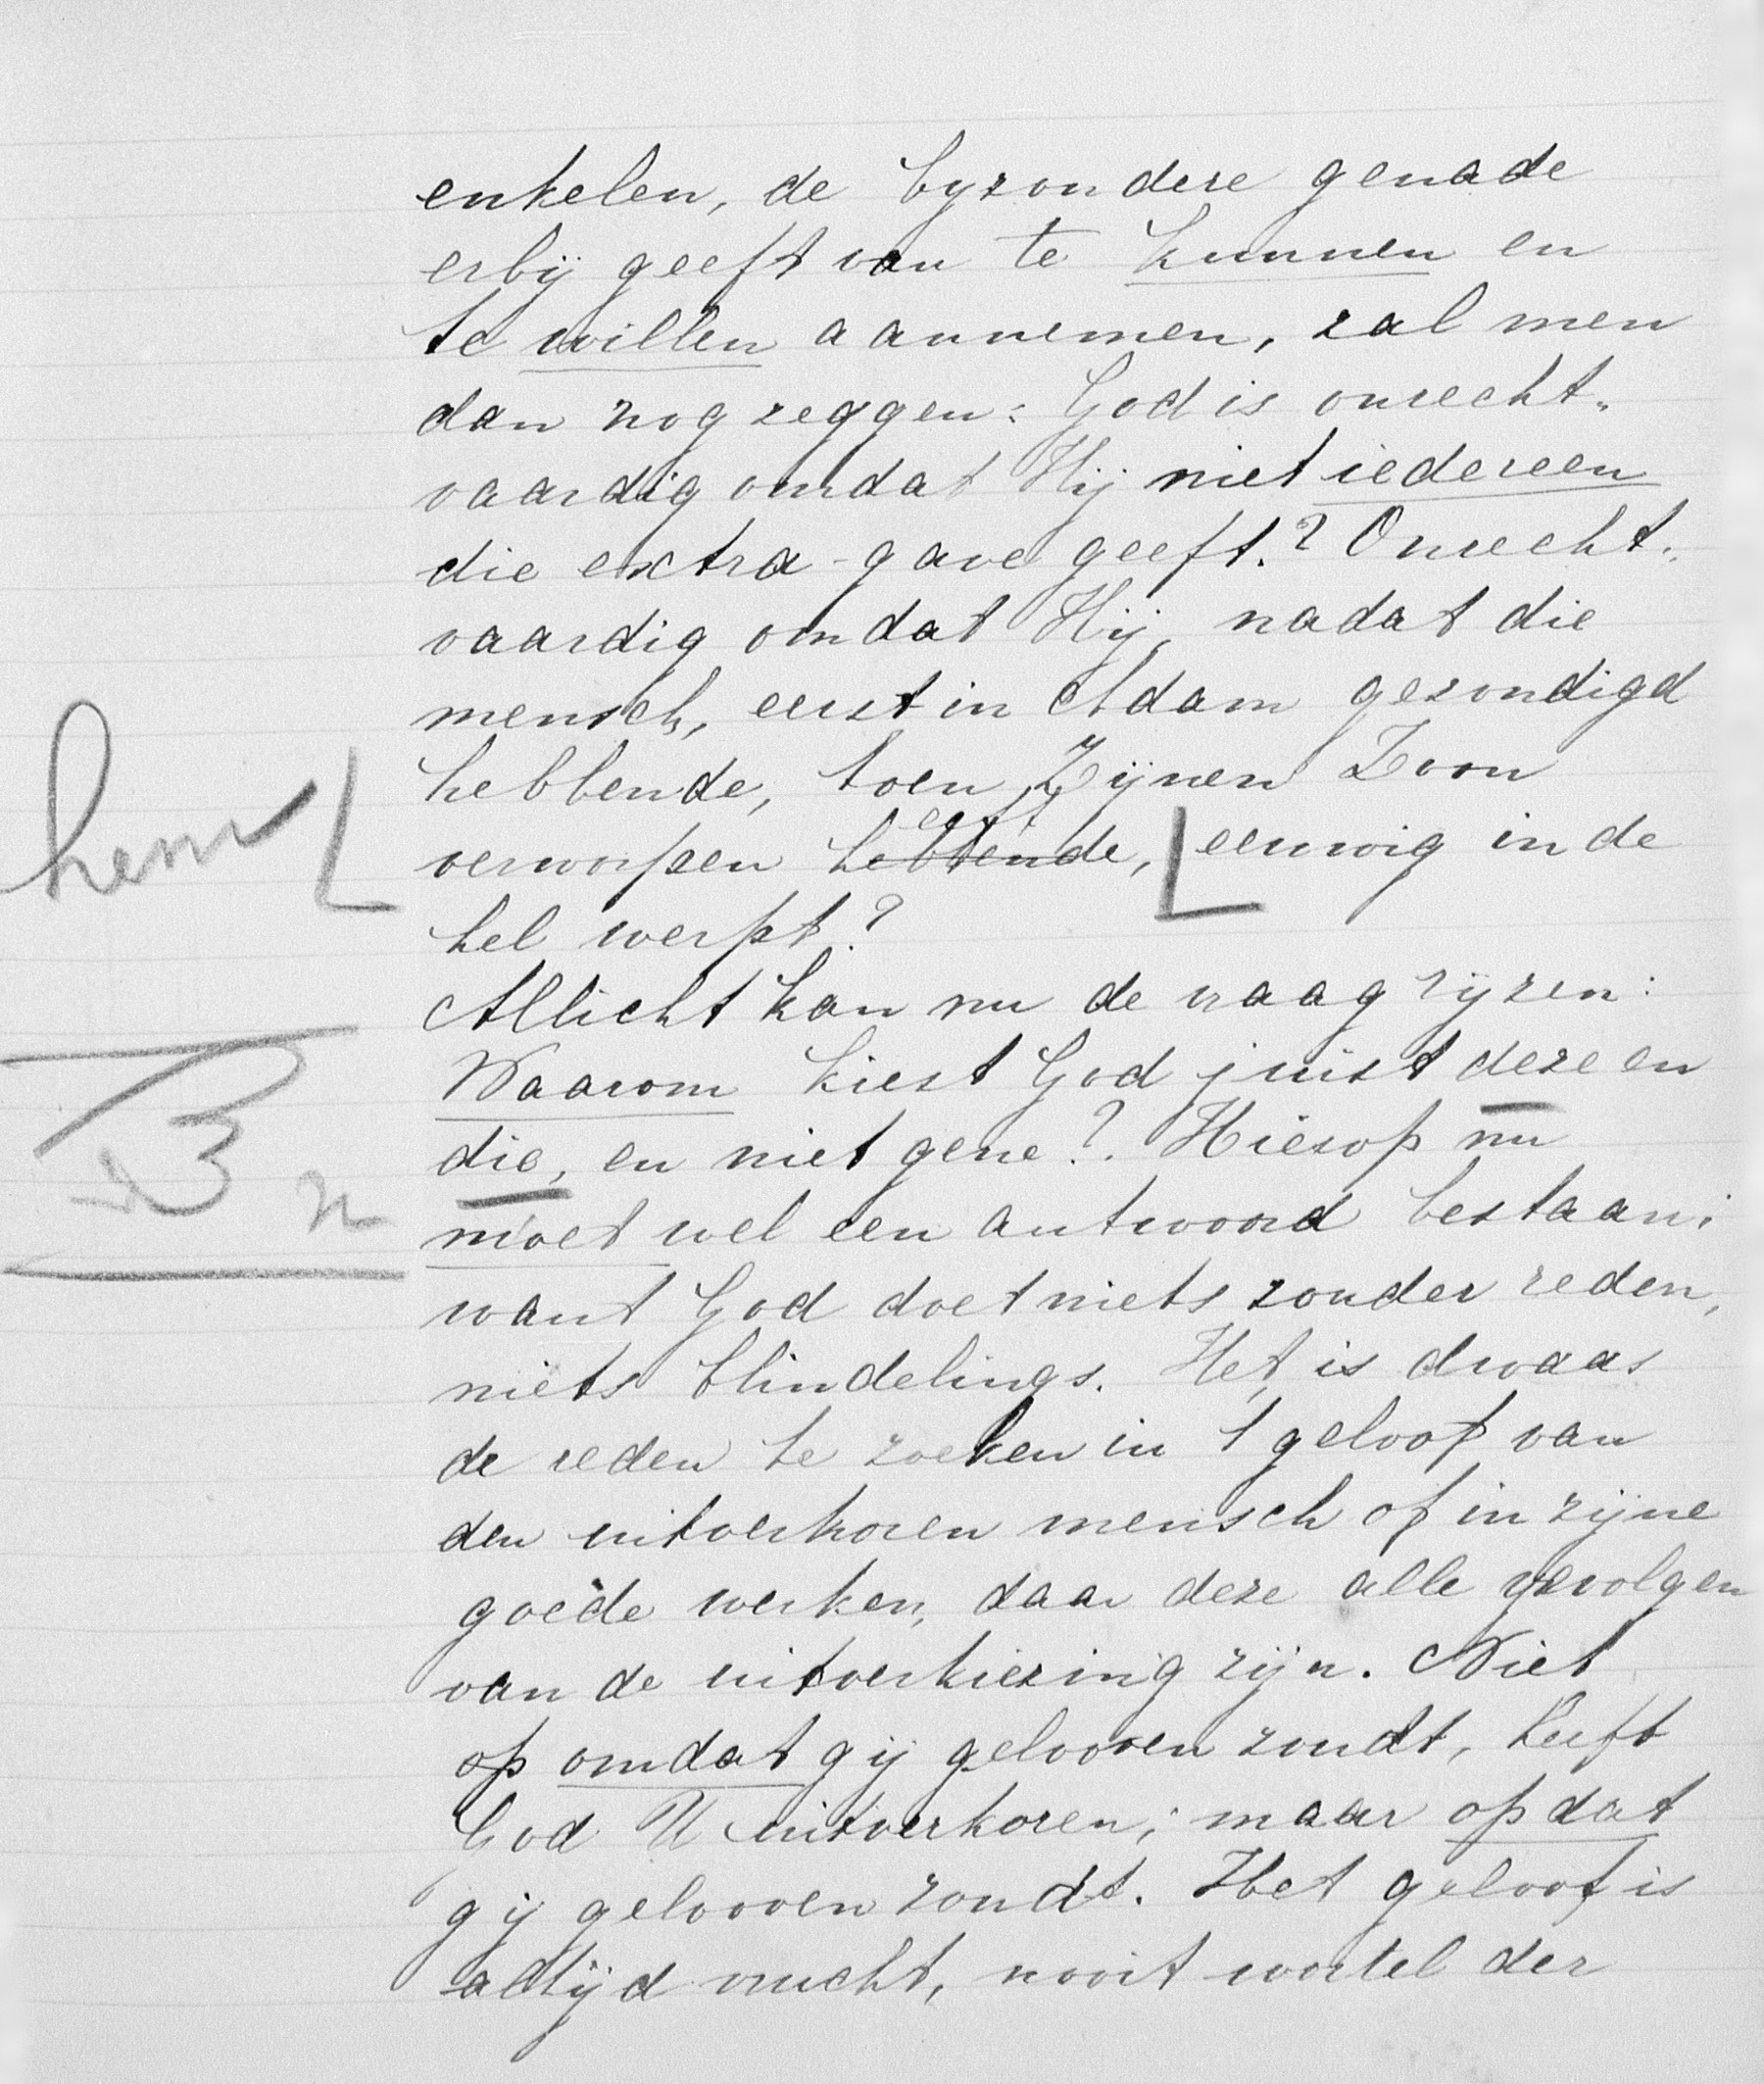 enkelen, de byzondere genade
erbij geeft van te kunnen en
te willen aannemen, zal men
dan nog zeggen: God is onrecht-
vaardig omdat Hij niet iedereen
die extra-gave geeft.? Onrecht-
vaardig omdat Hij, nadat die
mensch, eerst in Adam gezondigd
hebbende, toen Zijnen Zoon
heeft
hem
verworpen hebbende, eeuwig in de
hel werpt?
Allicht kan nu de vraag rijzen:
Waarom kiest God juist deze en
die, en niet gene?. Hierop nu
moet wel een antwoord bestaan;
want God doet niets zonder reden,
niets blindelings. Het is dwaas
de reden te zoeken in 't geloof van
den uitverkoren mensch of in zijne
goede werken, daar deze alle gevolgen
van de uitverkiezing zijn. Niet
op omdat gij gelooven zoudt, heeft
God U uitverkoren; maar opdat
gij gelooven zoudt. Het geloof is
altijd vrucht, nooit wortel der